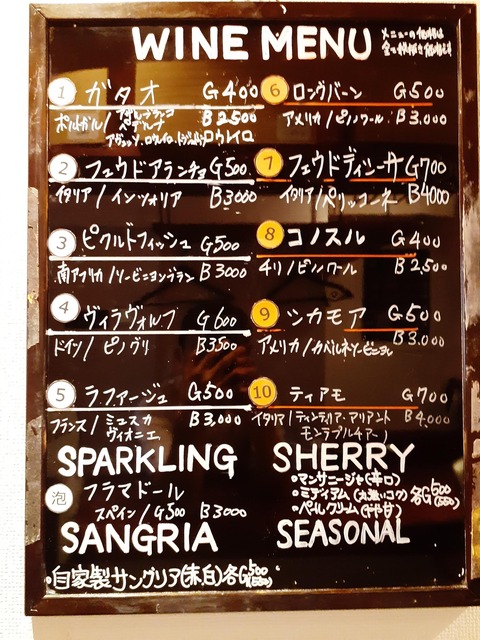 WINE MENU
メニューの価格は
全て税抜き価格です
1 ガタオ G400
ポルトガル/ B2500
アザール ロウレイロ
2 フェウドアランチョ G500
イタリア/インツォリア B3000
3 ピクルドフィッシュ G500
南アフリカ/ソービニヨンブラン B3000
4 ヴィラヴォルフ G600
ドイツ/ピノグリ B3500
5 ラファージュ G500
フランス/ミュスカ B3,000
ヴィオニエ
6 ロングバーン G500
アメリカ/ピノノワール B3,000
7 フェウドディシーサ G700
イタリア/ペリッコーネ B4000
8 コノスル G400
チリ/ピノノワール B2,500
9 シカモア G500
アメリカ/カベルネソービニヨン B3,000
10 ティアモ G700
イタリア/ B4000
モンテプルチアーノ
SPARKLING
泡 フラマドール
スペイン/G500 B3000
SANGRIA
・自家製サングリア(赤白)各G500
SHERRY
・マンサニージャ(辛口)
・ミディアム(丸濃いコク) 各G500
・ペールクリーム(やや甘)
SEASONAL